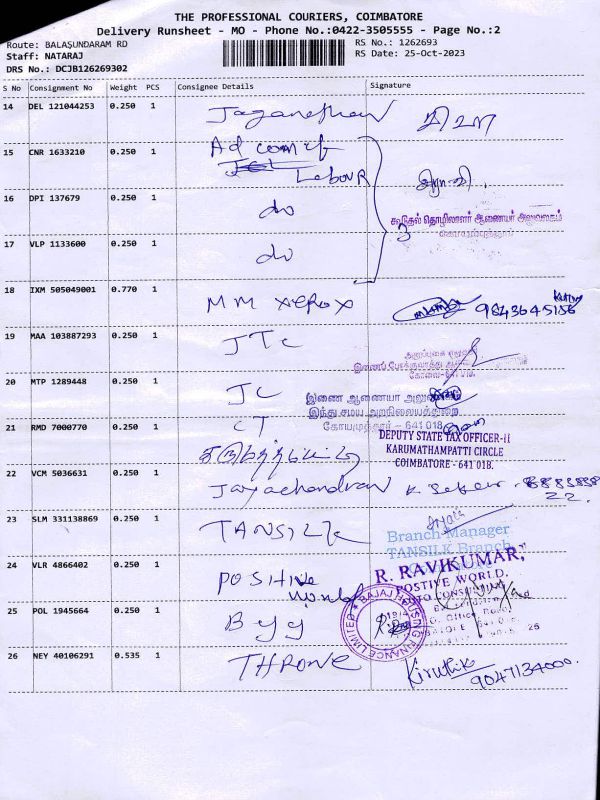 THE PROFESSIONAL COURIERS, COIMBATORE
Delivery Runsheet - MO - Phone No.:0422-3505555 - Page No.:2
Route: BALASUNDARAM RD
RS No.: 1262693
Staff: NATARAJ
RS Date: 25-Oct-2023
DRS No.: DCJB126269302
S No Consignment No Weight PCS Consignee Details Signature
14 DEL 121044253 0.250 1 Jaganathan
15 CNR 1633210 0.250 1 Ad
Labour
16 DPI 137679 0.250 1 do
கூடுதல் தொழிலாளர் ஆணையர் அலுவலகம்
17 VLP 1133600 0.250 1 do
3
18 IXM 505049001 0.770 1 MM xerox 9843645156
19 MAA 103887293 0.250 1 JTC
கோவை-641 018.
20 MTP 1289448 0.250 1 JC
இணை ஆணையர் அலுவலகம்
இந்து சமய அறநிலையத்துறை
கோயமுத்தூர் - 641 018.
21 RMD 7000770 0.250 1 CT
DEPUTY STATE TAX OFFICER-II
KARUMATHAMPATTI CIRCLE
COIMBATORE - 641 018.
22 VCM 5036631 0.250 1 Jayachandran
23 SLM 331138869 0.250 1 TANSILK
Branch Manager
TANSILK Branch
24 VLR 4866402 0.250 1 POSITIVE World
R. RAVIKUMAR,
POSTIVE WORLD,
25 POL 1945664 0.250 1
BAJAJ HOUSING FINANCE LIMITED
26 NEY 40106291 0.535 1 THRONE Kiruthika
9047134000.